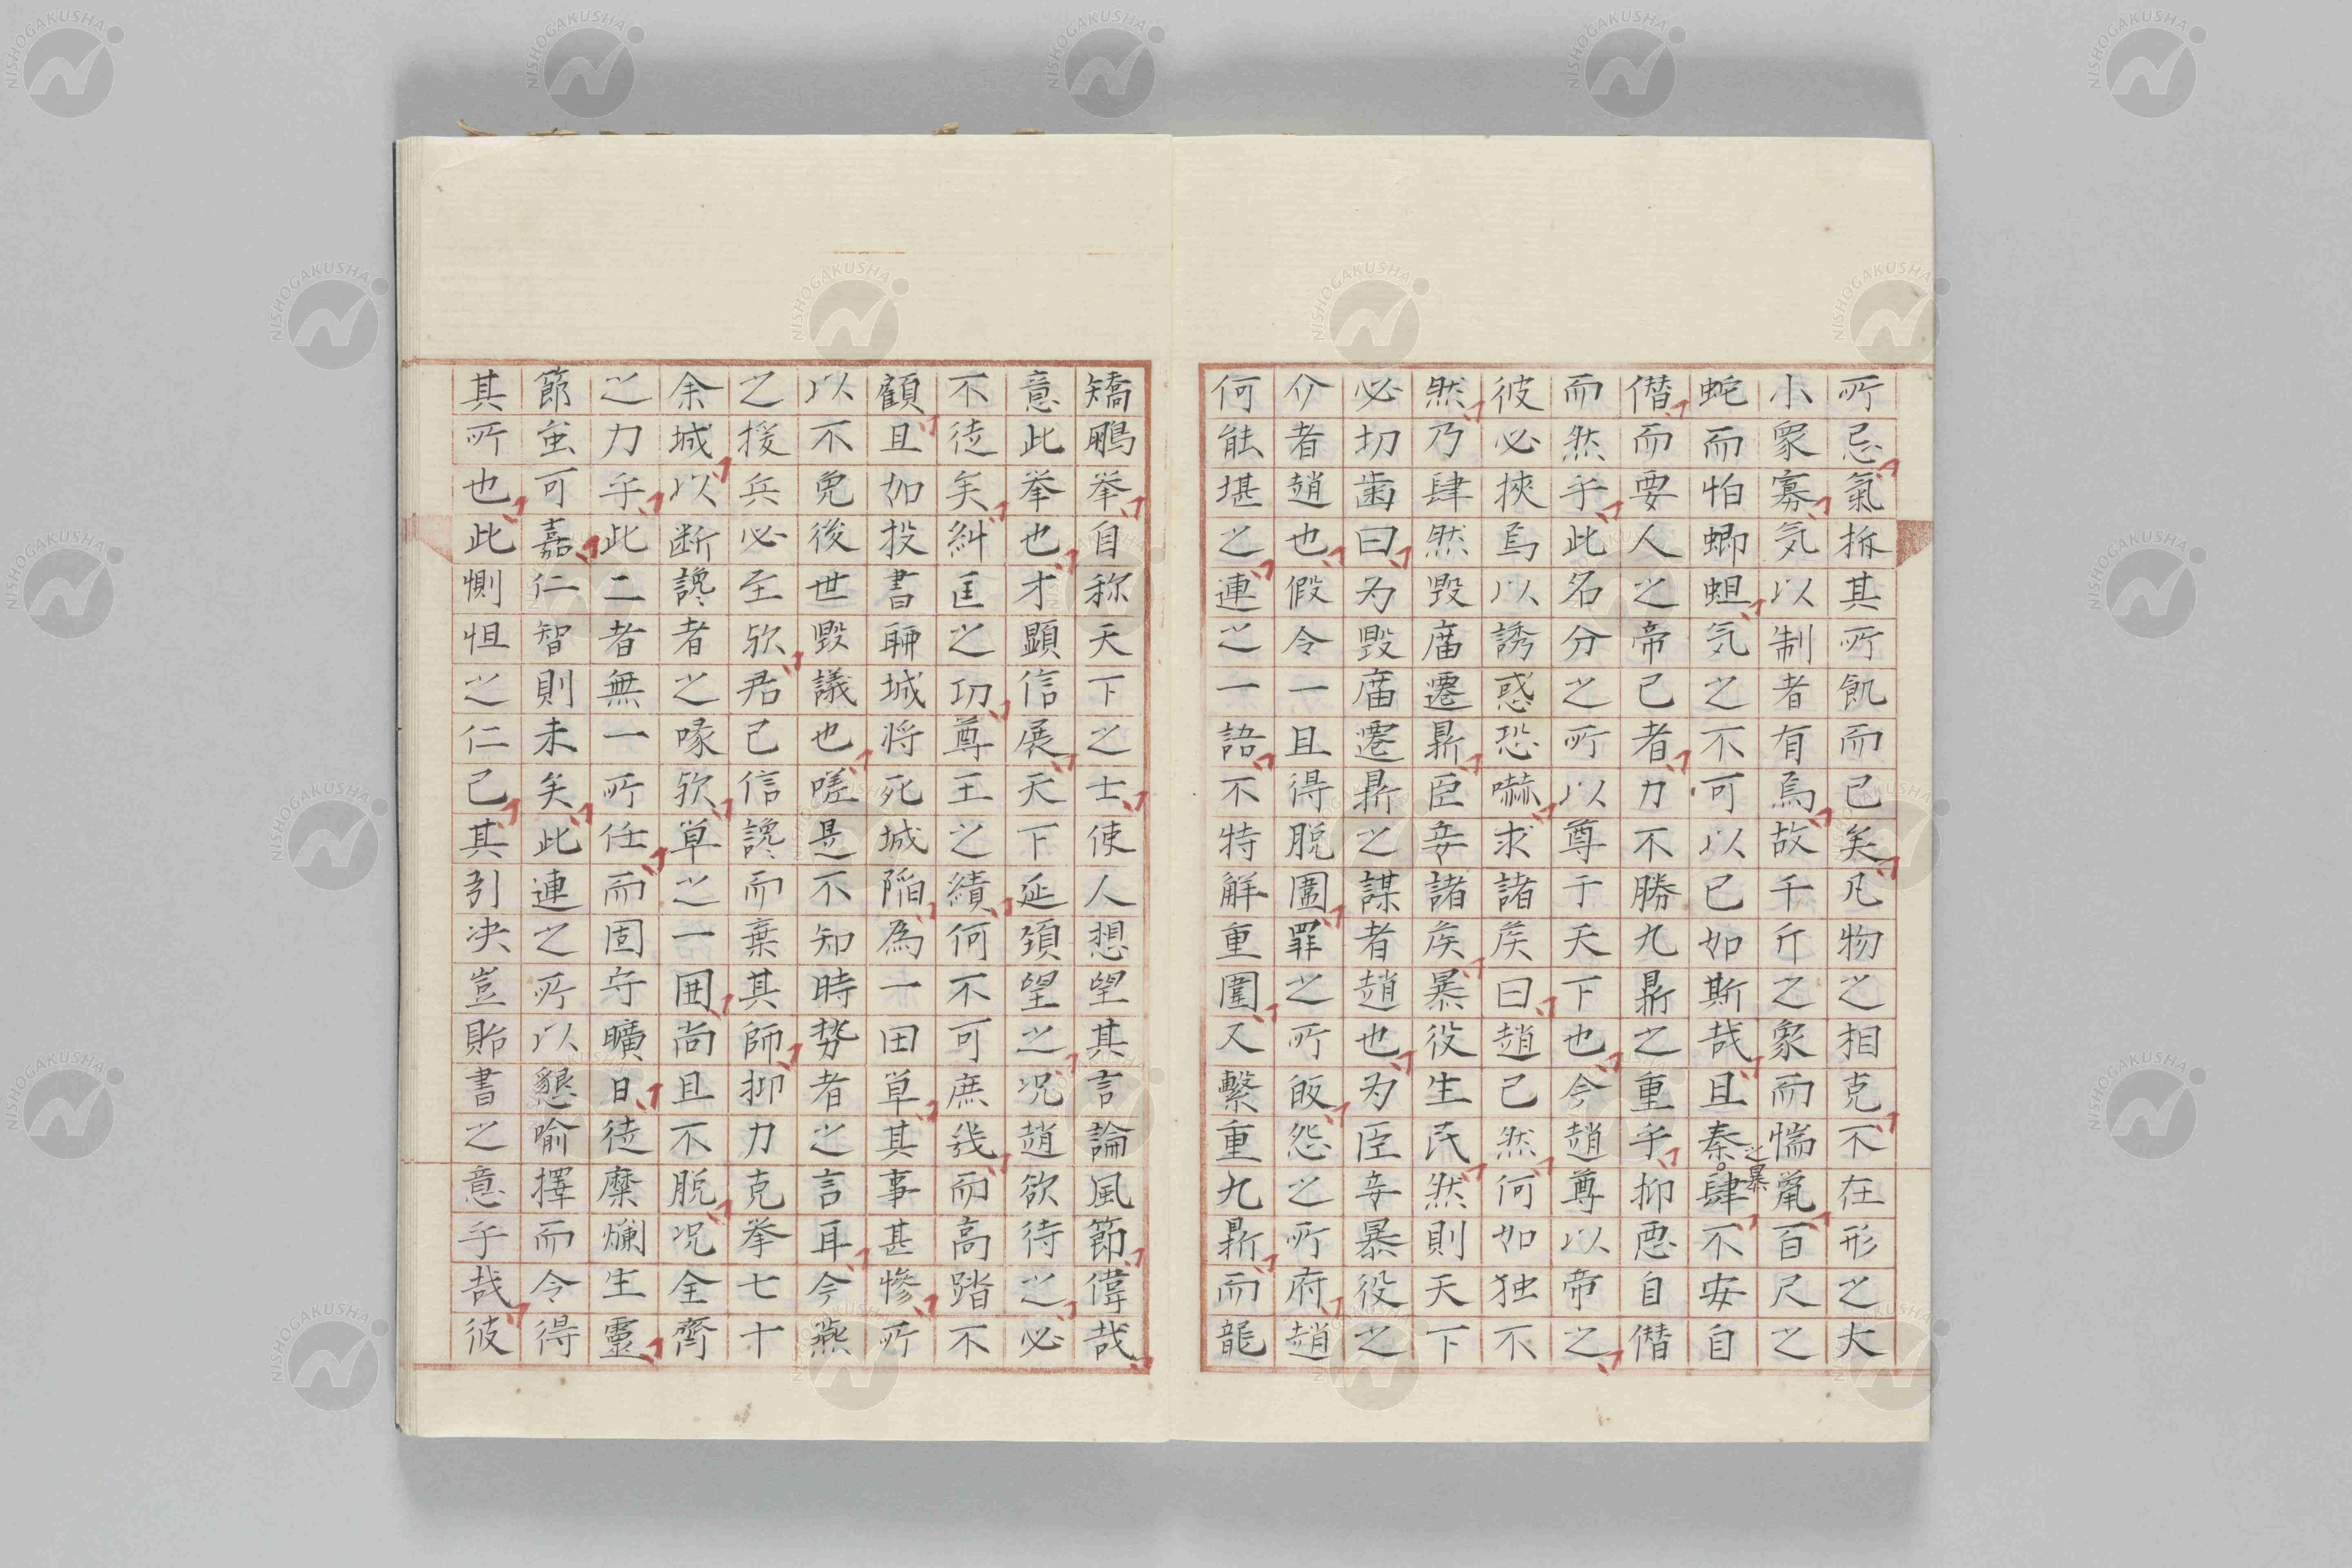 所忌氣拆其所飢而已矣凡物之相克不在形之大
小衆寡気以制者有焉故千斤之象而惴鼠百尺之
蛇而怕蝍蛆気之不可以已如斯哉且秦之暴肆不安自
僭而要人之帝己者力不勝九鼎之重乎抑悪自僭
而然乎此名分之所以尊于天下也今趙尊以帝之
彼必挾焉以誘惑恐嚇求諸侯曰趙已然何如独不
然乃肆然毀庿遷鼎臣妾諸侯暴役生民然則天下
必切歯曰为毀庿遷鼎之謀者趙也为臣妾暴役之
介者趙也假令一旦得脱圍罪之所皈怨之所府趙
何能堪之連之一語不特解重圍又繫重九鼎而龍
矯鵬挙自称天下之士使人想望其言論風節偉哉
意此挙也才顕信展天下延頚望之况趙欲待之必
不徒矣糾匡之功尊王之績何不可庶幾而高踏不
顧且如投書聊城将死城陥為一田単其事甚惨所
以不免後世毀議也嗟是不知時勢者之言耳今燕
之援兵必至欤君已信讒而棄其師抑力克挙七十
余城以断讒者之喙欤単之一囲尚且不脱况全齊
之力乎此二者無一所任而固守曠日徒糜爛生霊
節虽可嘉仁智則未矣此連之所以懇喻擇而令得
其所也此惻怛之仁已其引决豈貽書之意乎哉彼
NISHOGAKUSHA